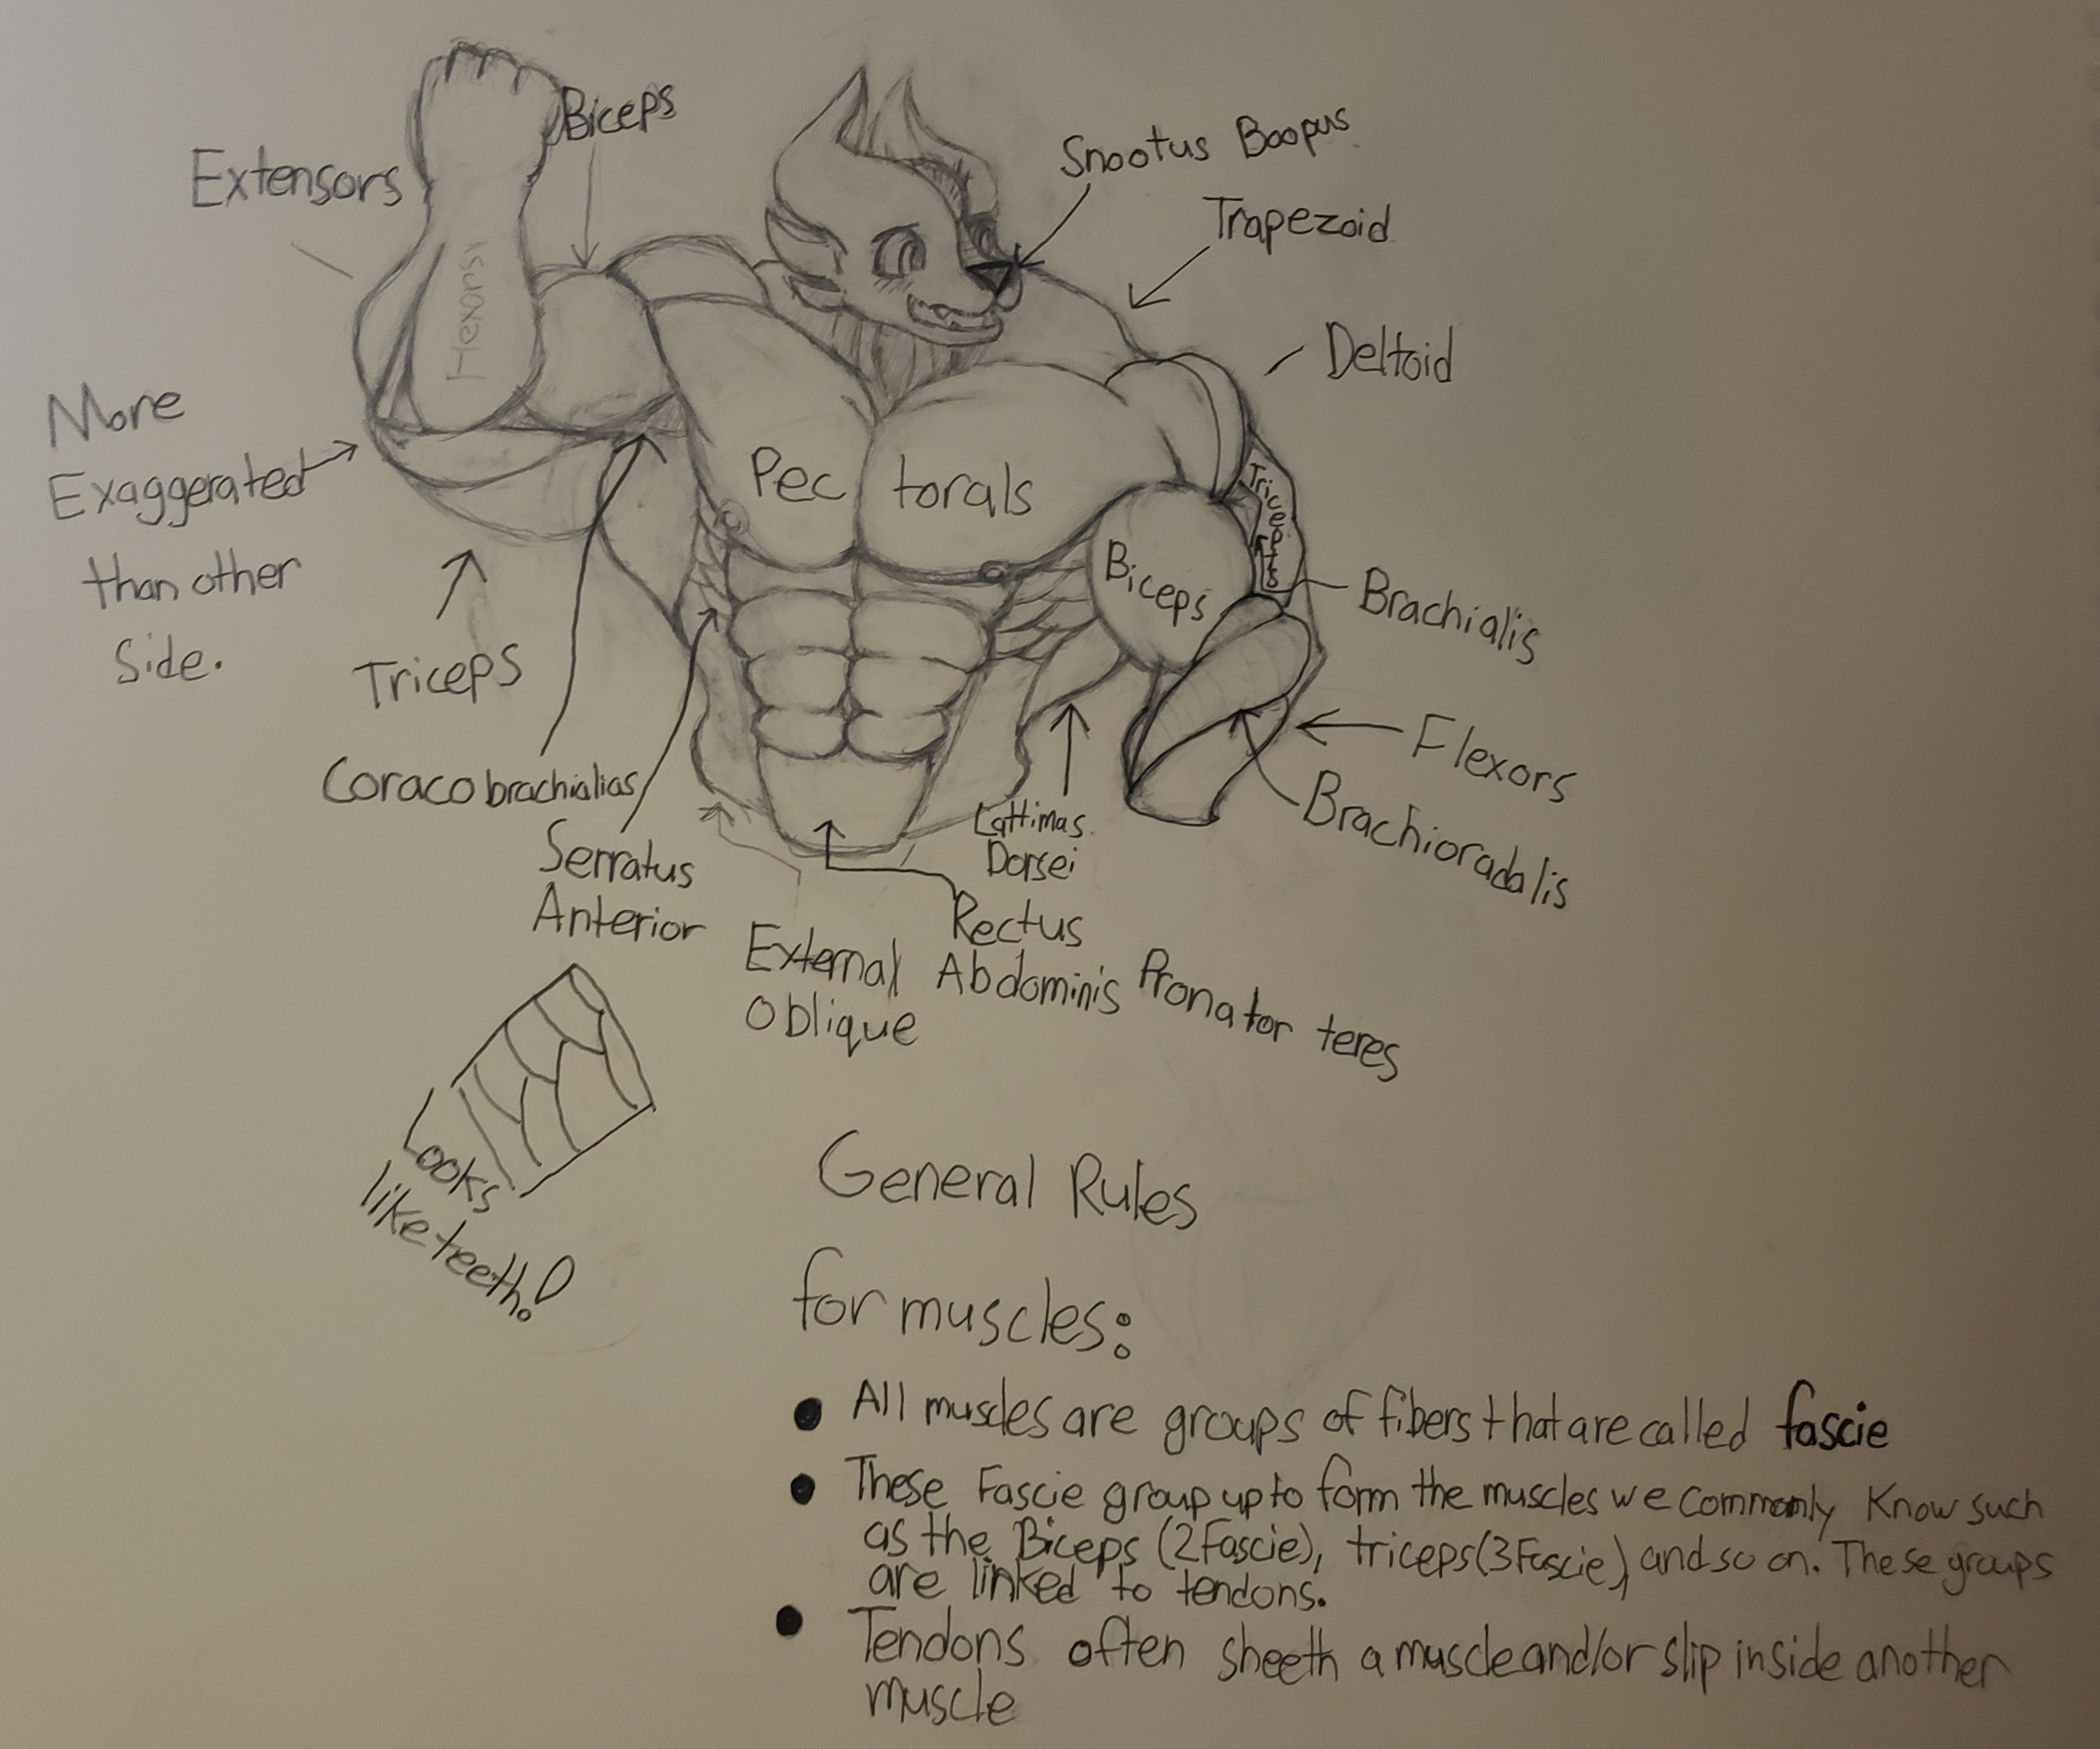 Biceps
Extensors
Flexors
Snootus Boopus
Trapezoid
Deltoid
More
Exaggerated
than other
side.
Pec torals
Triceps
Biceps
Triceps
Brachialis
Coracobrachialias
Flexors
Brachioradalis
Serratus
Anterior
Lattimas
Dorsei
Rectus
Abdominis
External
Oblique
Pronator teres
Looks
like teeth!
General Rules
for muscles:
● All muscles are groups of fibers that are called fascie
● These Fascie group up to form the muscles we commonly Know such
as the Biceps (2Fascie), triceps(3Fascie), and so on. These groups
are linked to tendons.
● Tendons often sheeth a muscle and/or slip inside another
muscle